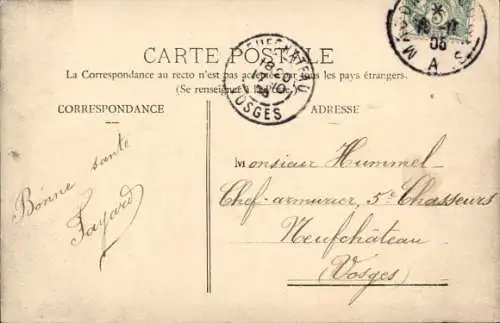 CARTE POSTALE
La Correspondance au recto n'est pas acceptée par tous les pays étrangers.
(Se renseigner à la Poste)
CORRESPONDANCE
ADRESSE
Bonne santé
Fayard
NEUFCHATEAU
VOSGES
05
A
5
Monsieur Hummel
Chef-armurier, 5e Chasseurs
Neufchâteau
(Vosges)